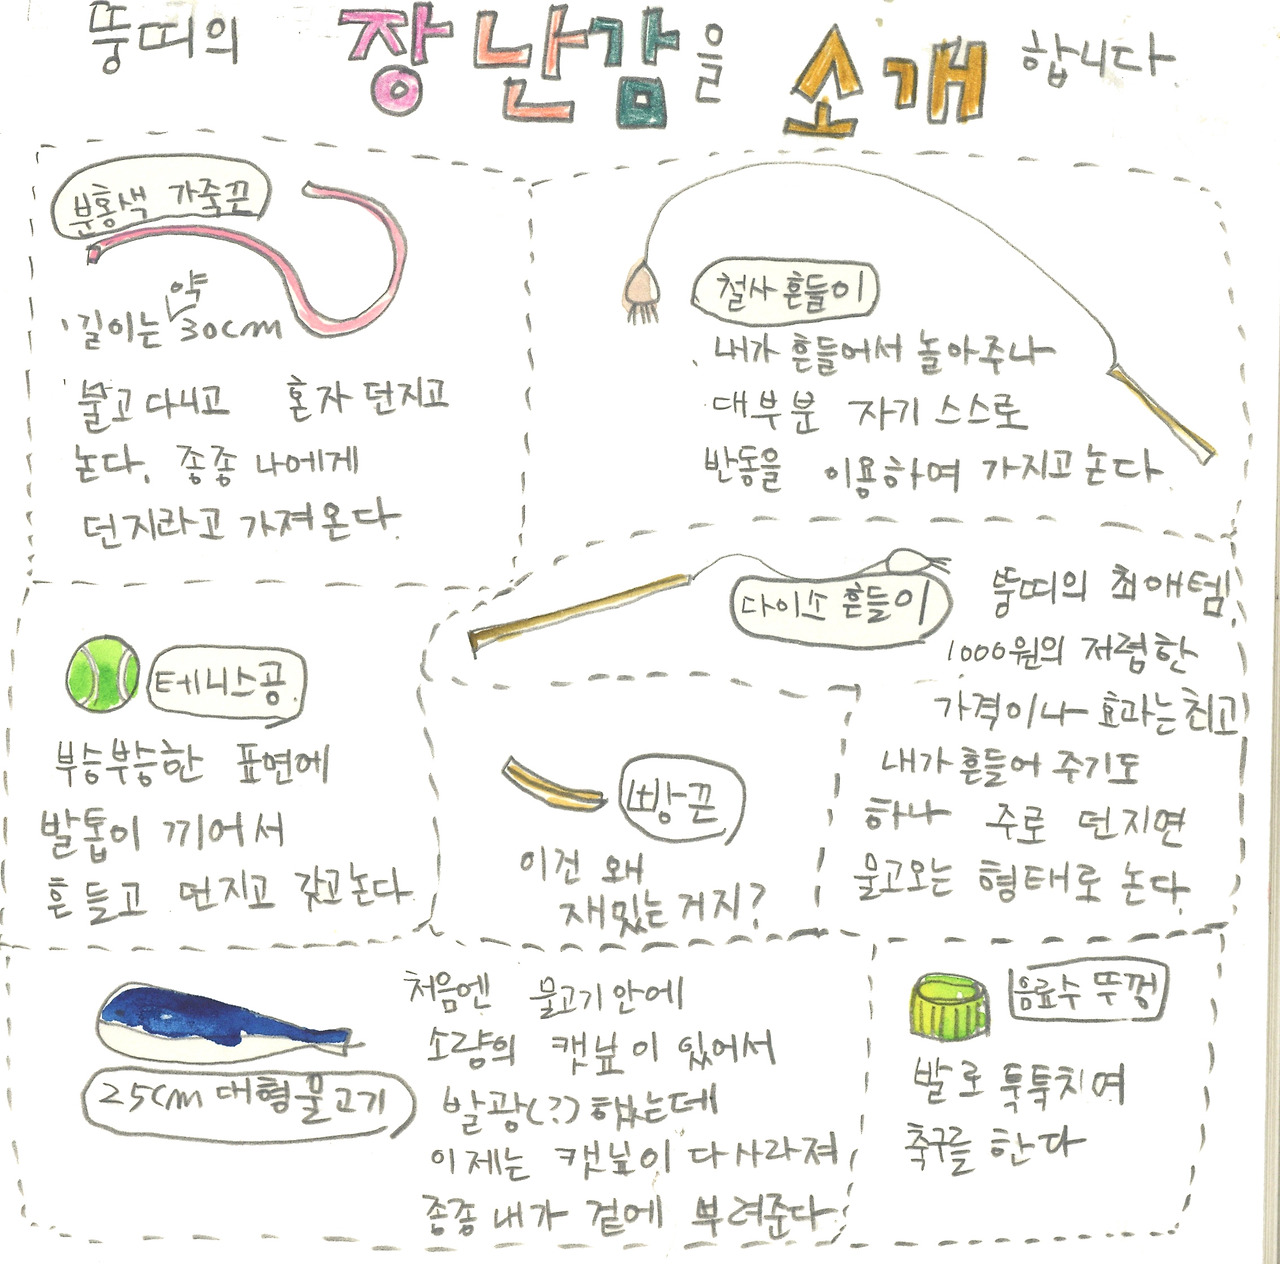 뚱띠의 장난감을 소개 합니다
분홍색 가죽끈
약
길이는 30cm
물고 다니고 혼자 던지고
논다. 종종 나에게
던지라고 가져온다.
철사 흔들이
내가 흔들어서 놀아주나
대부분 자기 스스로
반동을 이용하여 가지고 논다
다이소 흔들이
뚱띠의 최애템.
1000원의 저렴한
가격이나 효과는 최고
내가 흔들어 주기도
하나 주로 던지면
물고오는 형태로 논다.
테니스공
부숭부숭한 표면에
발톱이 끼어서
흔들고 던지고 갖고논다
빵끈
이건 왜
재밌는 거지?
25cm 대형물고기
처음엔 물고기 안에
소량의 캣닢이 있어서
발광(?) 했는데
이제는 캣닢이 다 사라져
종종 내가 겉에 뿌려준다
음료수 뚜껑
발로 툭툭치여
축구를 한다